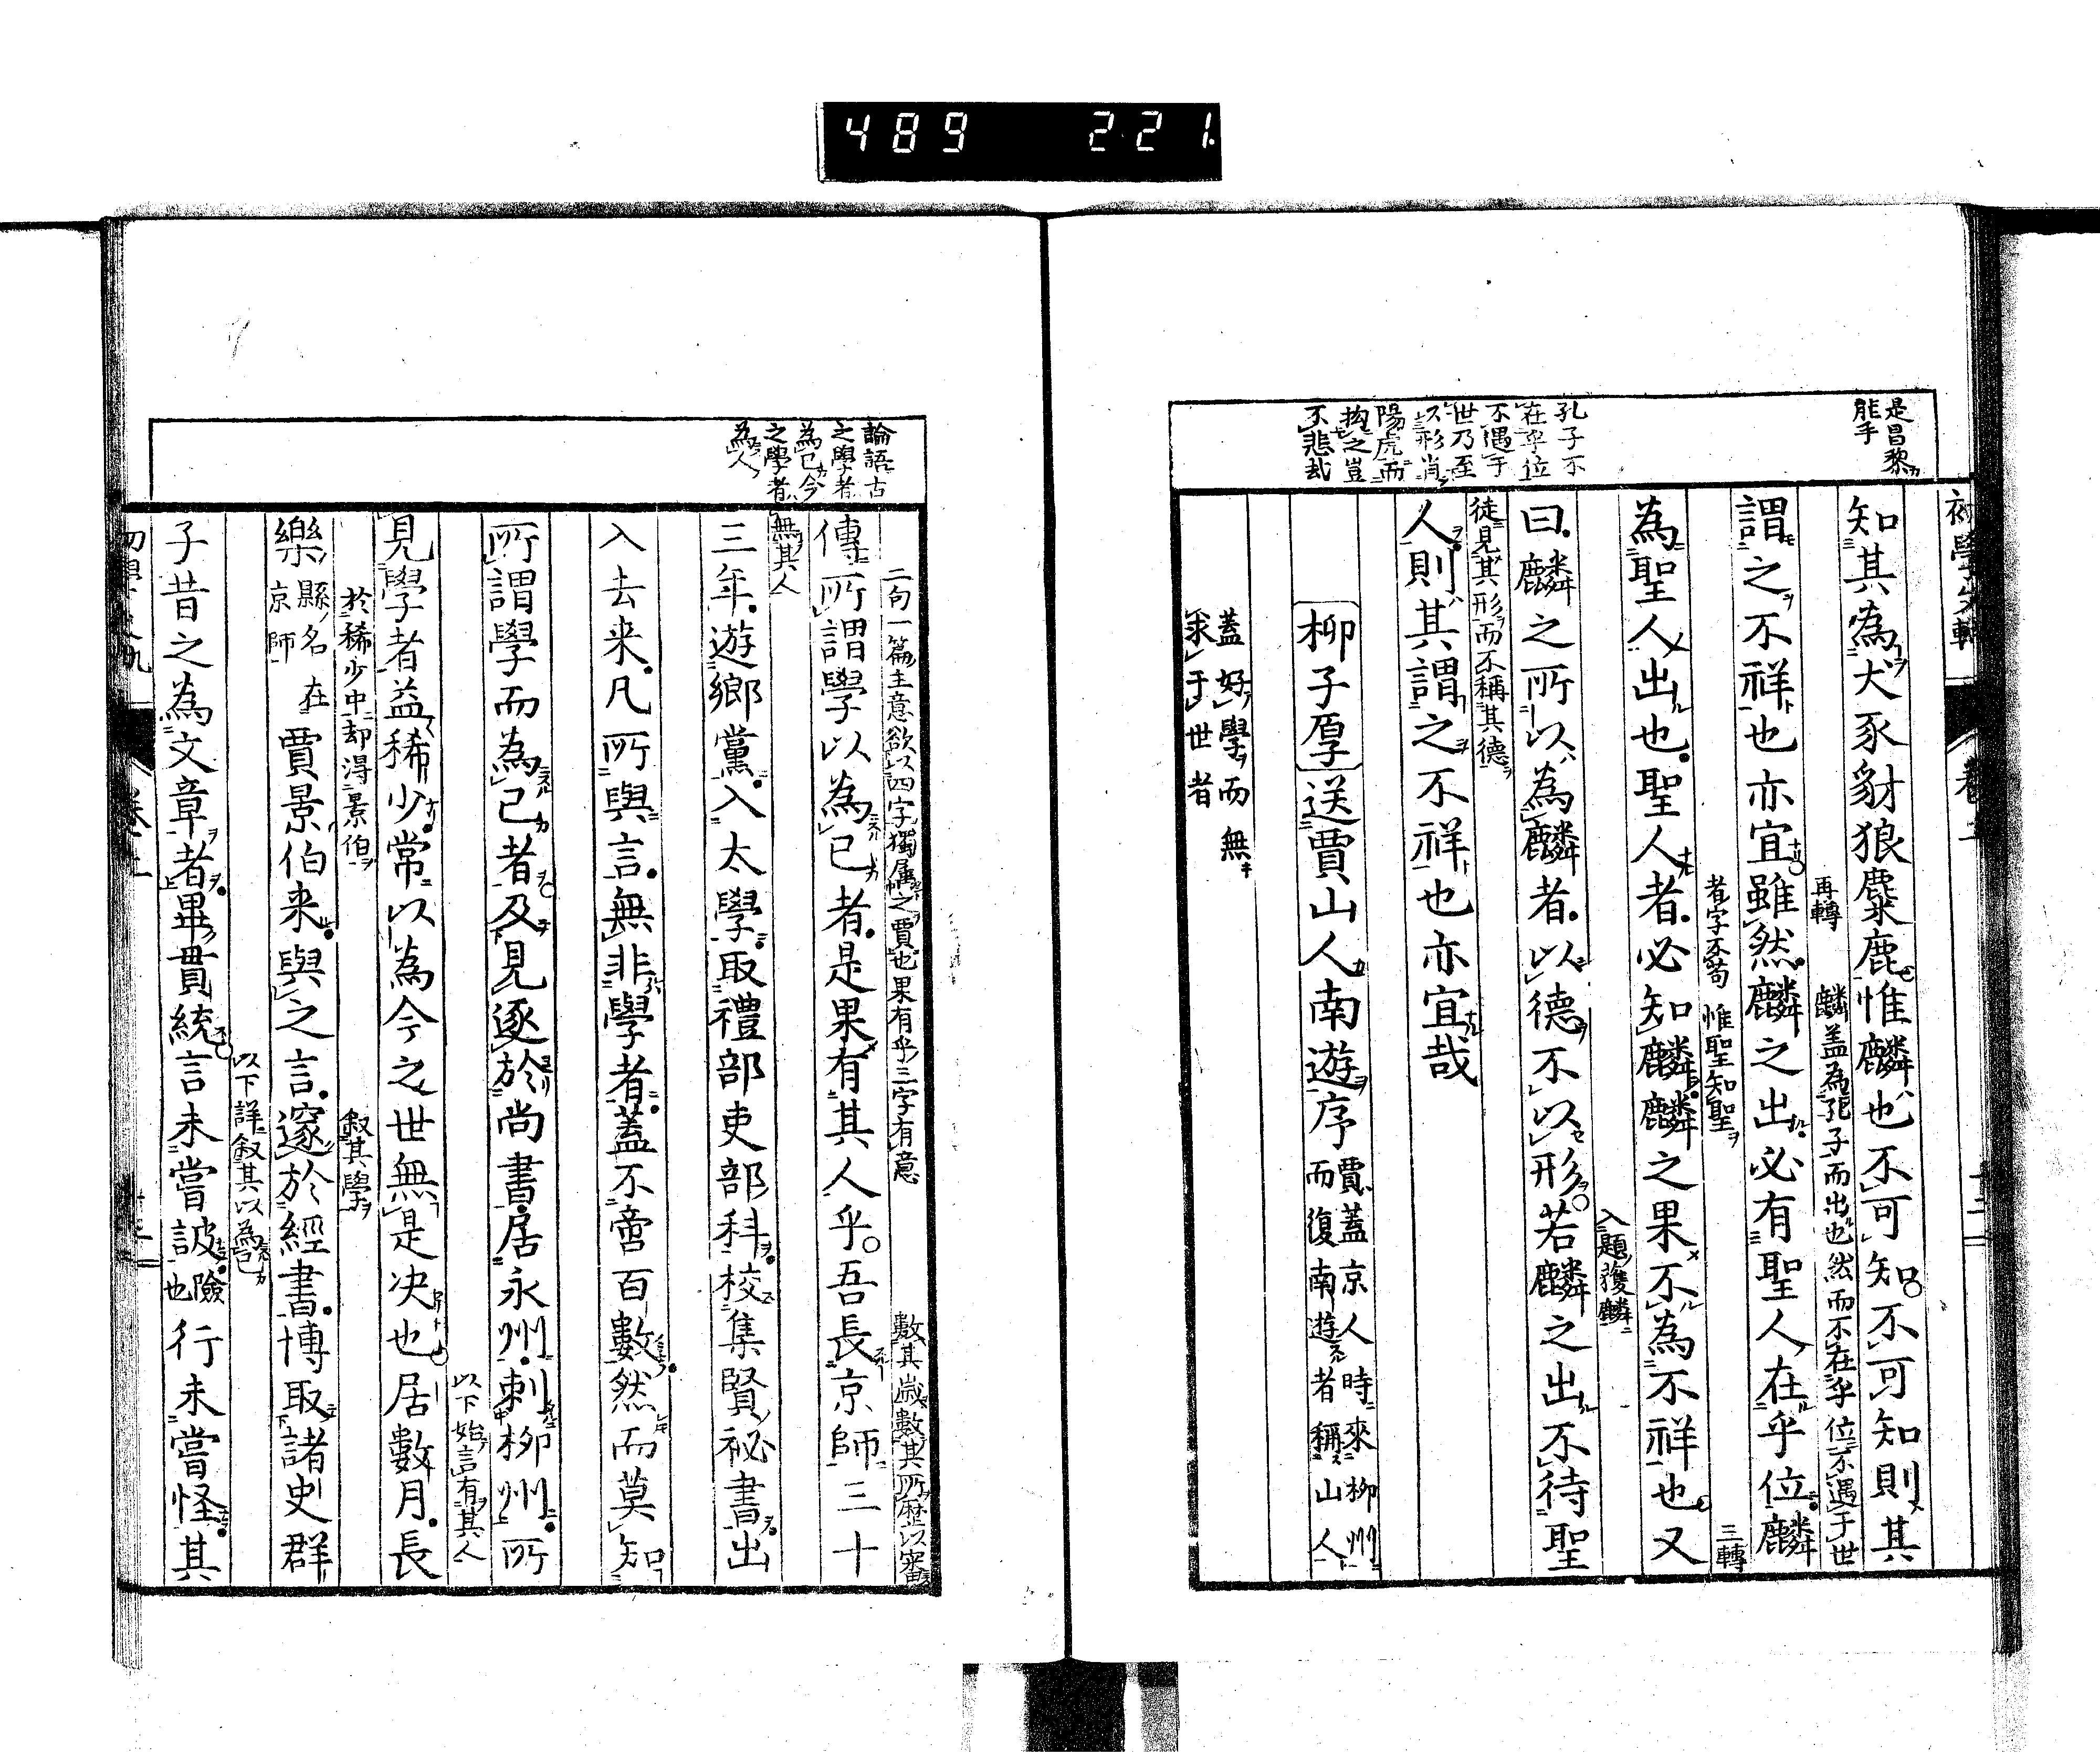 489 221
是昌黎
能手
孔子不
在乎位
不遇于
世乃至
以形肖
陽虎而
拘之豈
不悲哉
知其為犬豕豺狼麋鹿惟麟也不可知不可知則其
再轉 麟蓋為孔子而出也然而不在乎位不遇于世
謂之不祥也亦宜雖然麟之出必有聖人在乎位麟
者字不苟 惟聖知聖 三轉
為聖人出也聖人者必知麟麟之果不為不祥也又
入題獲麟
曰麟之所以為麟者以德不以形若麟之出不待聖
徒見其形而不稱其德
人則其謂之不祥也亦宜哉
柳子厚送賈山人南遊序賈蓋京人時來柳州
而復南遊者稱山人
蓋好學而無
求于世者
論語古
之學者
為己今
之學者
為人
二句一篇主意欲以四字獨屬之賈也果有乎三字有意 數其歲數其所歷以寓
傳所謂學以為己者是果有其人乎吾長京師三十
無其人
三年遊鄉黨入太學取禮部吏部科校集賢祕書出
入去来凡所與言無非學者蓋不啻百數然而莫知
所謂學而為己者及見逐於尚書居永州刺柳州所
以下始言有其人
見學者益稀少常以為今之世無是决也居數月長
於稀少中却得景伯 叙其學
樂縣名在
京師賈景伯来與之言邃於經書博取諸史群
以下詳叙其以為己
子昔之為文章者畢貫統言未嘗詖險
也行未嘗怪其